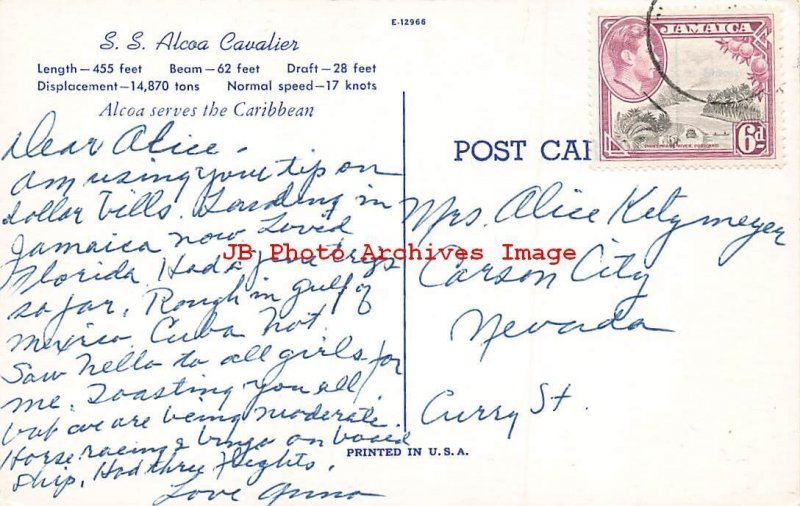 E-12966
S. S. Alcoa Cavalier
Length—455 feet Beam—62 feet Draft—28 feet
Displacement—14,870 tons Normal speed—17 knots
Alcoa serves the Caribbean
POST CAR
JAMAICA
6d
Dear Alice -
Am using your tip on
dollar bills. Landing in
Jamaica now. Loved
Florida. Had a fine trip
so far. Rough in gulf of
Mexico. Cuba hot.
Saw hello to all girls for
me. Toasting you all,
but we are being moderate.
Horse racing & bingo on board
ship. Had three flights.
Love Anna
Mrs. Alice Ketzmeyer
Carson City
Nevada
Curry St.
JB Photo Archives Image
PRINTED IN U.S.A.